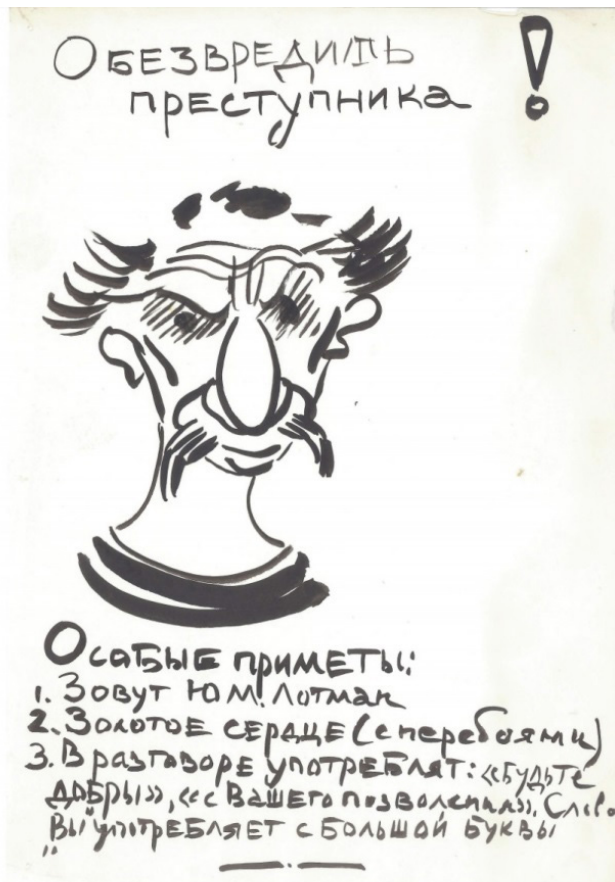 Обезвредить
преступника !
Особые приметы:
1. Зовут Ю.М. Лотман
2. Золотое сердце (с перебоями)
3. В разговоре употреблят: «будьте
добры», «с Вашего позволения». Слово
"Вы" употребляет с большой буквы